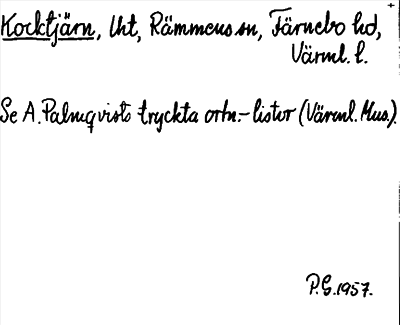 Kocktjärn, lht, Rämmens sn, Färnebo hd,
Värml. l.
Se A. Palmqvists tryckta ortn.-listor (Värml. Mus.).
P.G. 1957.